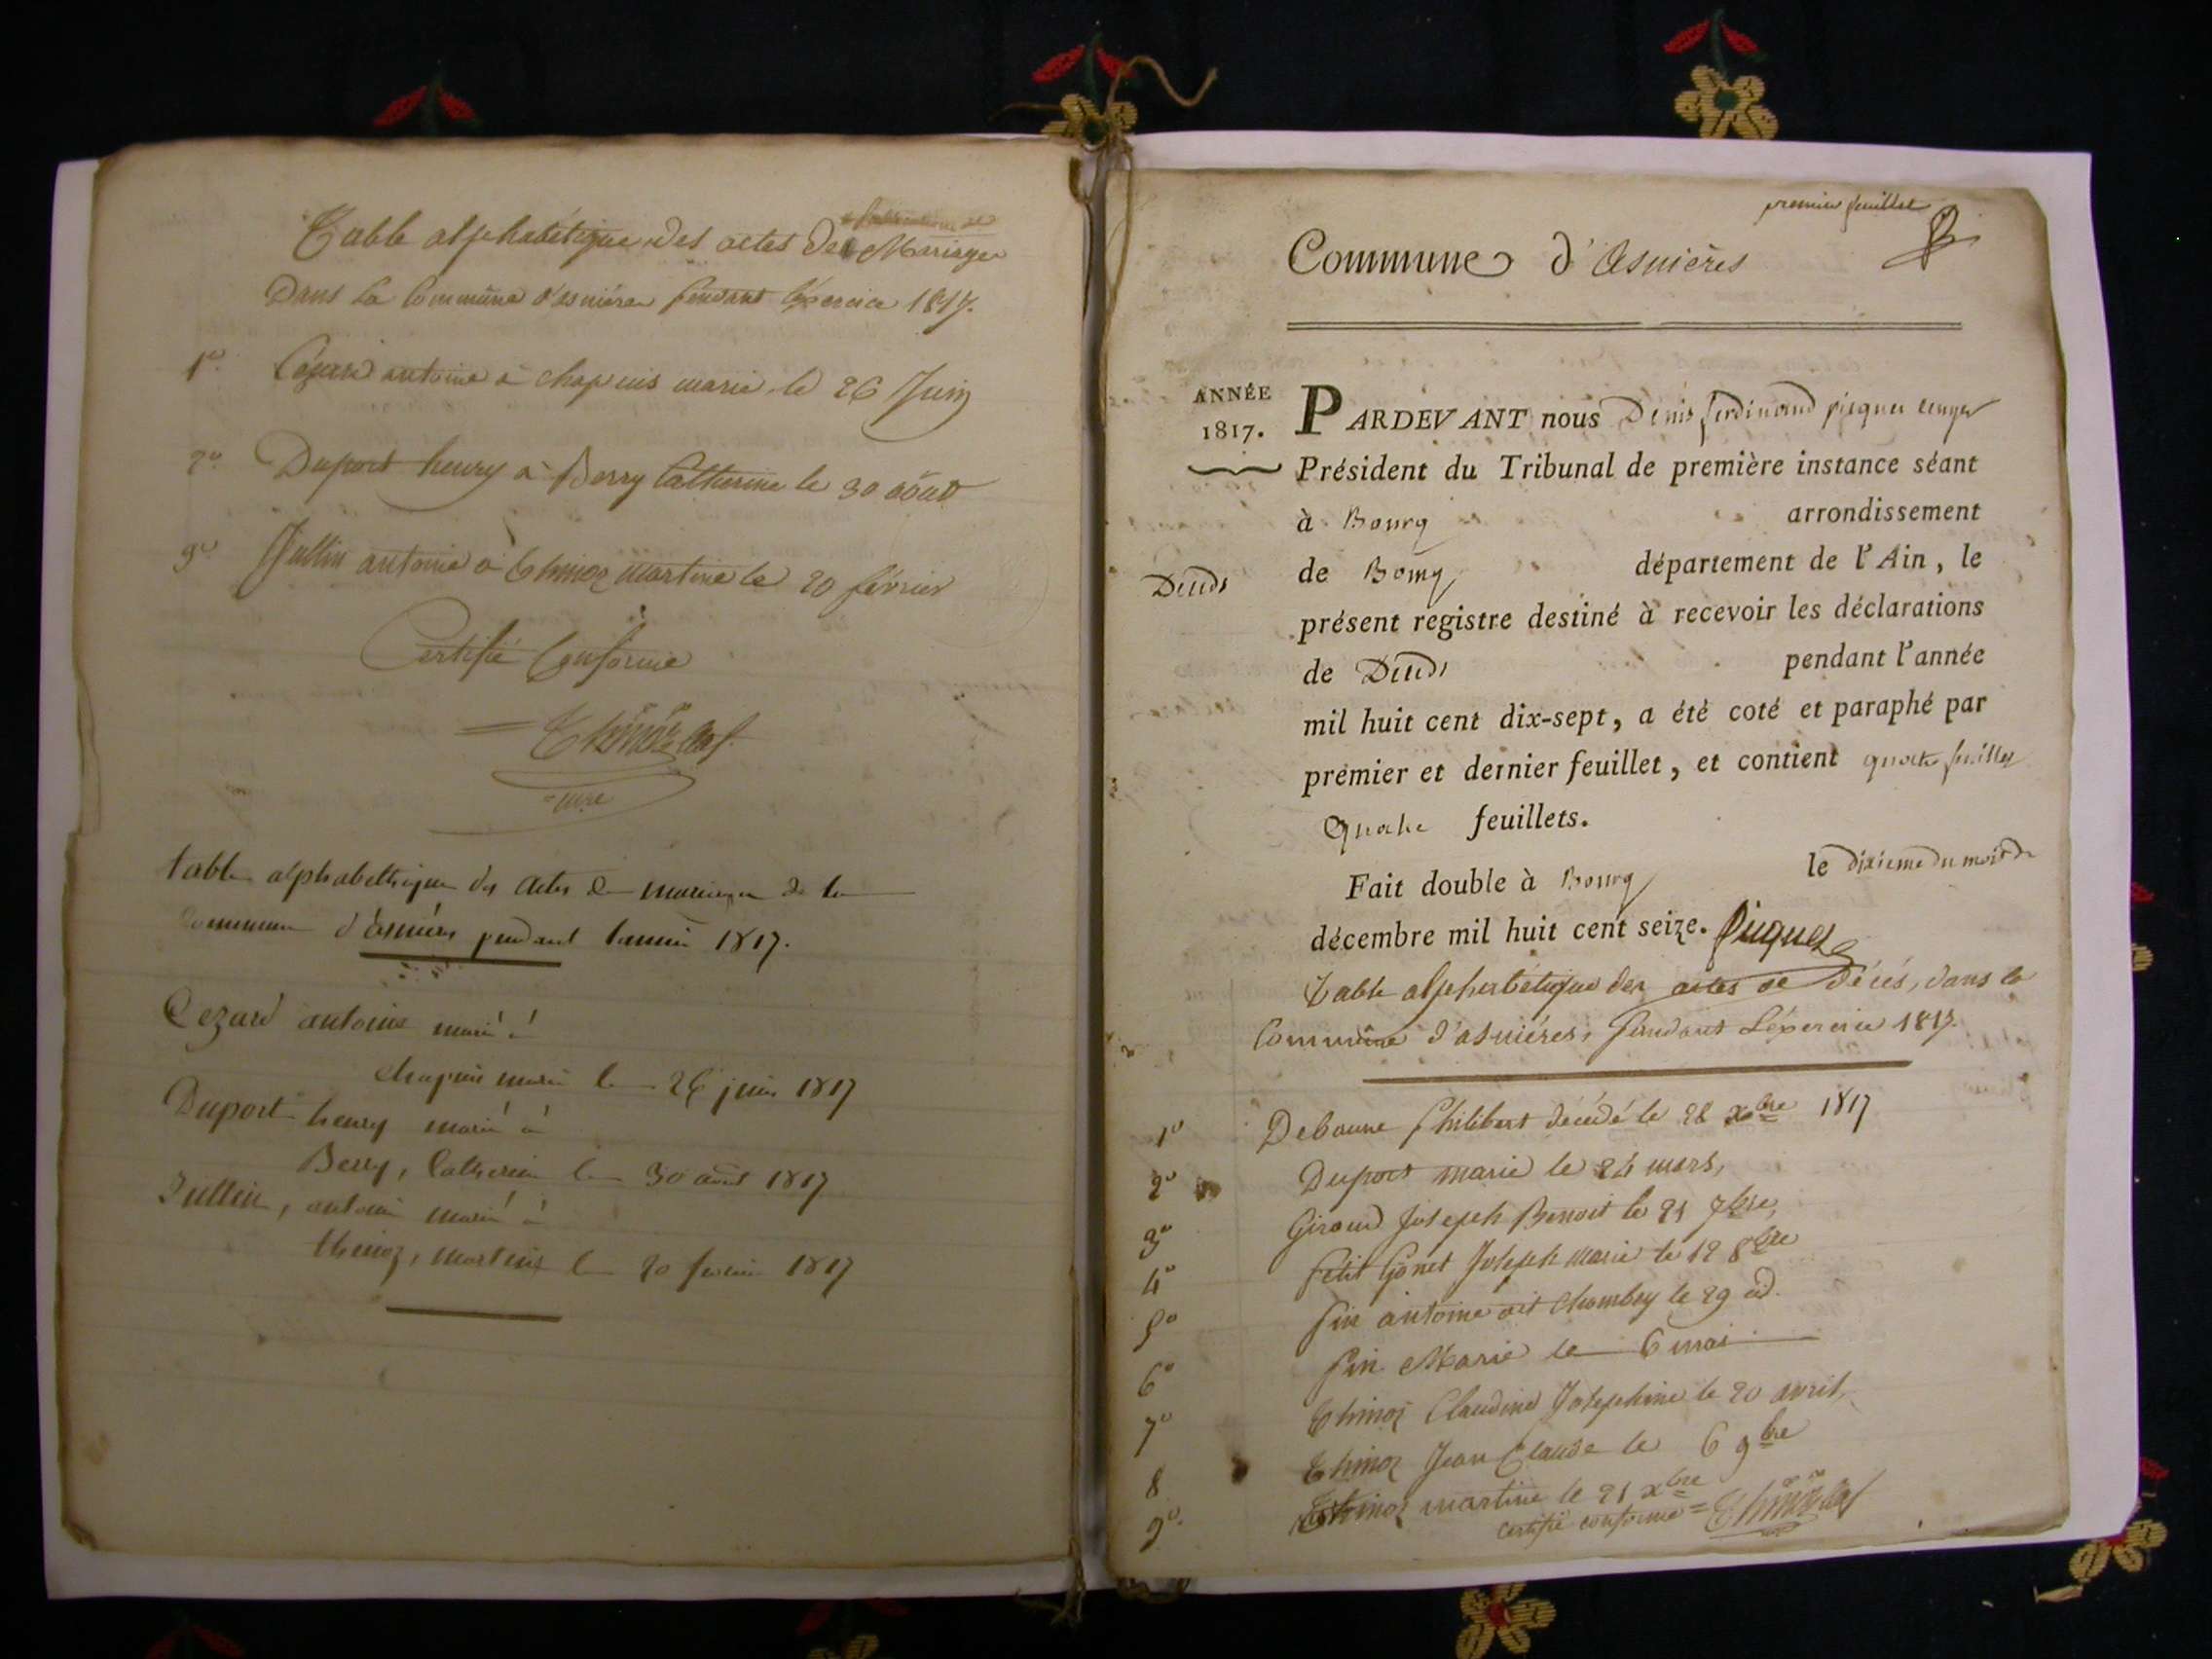 Table alphabétique des actes de Mariages
Dans la Commune d'asniéres pendant l'éxercice 1817.
1º Cézard antoine a chapuis marie, le 26 Juin
2º Duport henry a Berry Catherine le 30 aout
3º Jullin antoine a Thinoz martine le 20 février
Certifié Conforme
= Thinoz
maire
table alphabethique des actes de mariages de la
commune d'asniéres pendant l'année 1817.
Cezard antoine marié à
chapuis marie le 26 juin 1817
Duport henry marié à
Berry, Catherine le 30 aout 1817
Jullin, antoine marié à
thinoz, martine le 20 fevrier 1817
premier feuillet
Commune d'Asnières
ANNÉE
1817.
Décès
PARDEVANT nous Denis ferdinand piquet
Président du Tribunal de première instance séant
à Bourg arrondissement
de Bourg département de l'Ain, le
présent registre destiné à recevoir les déclarations
de Décès pendant l'année
mil huit cent dix-sept, a été coté et paraphé par
premier et dernier feuillet, et contient quatre feuillets
Quatre feuillets.
Fait double à Bourg le dixieme du mois de
décembre mil huit cent seize. Piquet
Table alphabétique des actes de Décés, dans la
Commune d'asniéres, pendant l'éxercice 1817.
1º Debaune Philibert décédé le 28 xbre 1817
2º Duport marie le 24 mars,
3º Giroud Joseph Benoit le 21 7bre,
4º Petit Gonet Joseph Marie le 12 8bre
5º Pin antoine dit Chambry le 29 id.
6º Pin Marie le 6 mai
7º Thinoz Claudine Josephine le 20 avril,
8 Thinoz Jean Claude le 6 9bre
9º Thinoz martine le 21 xbre
certifié conforme = Thinoz